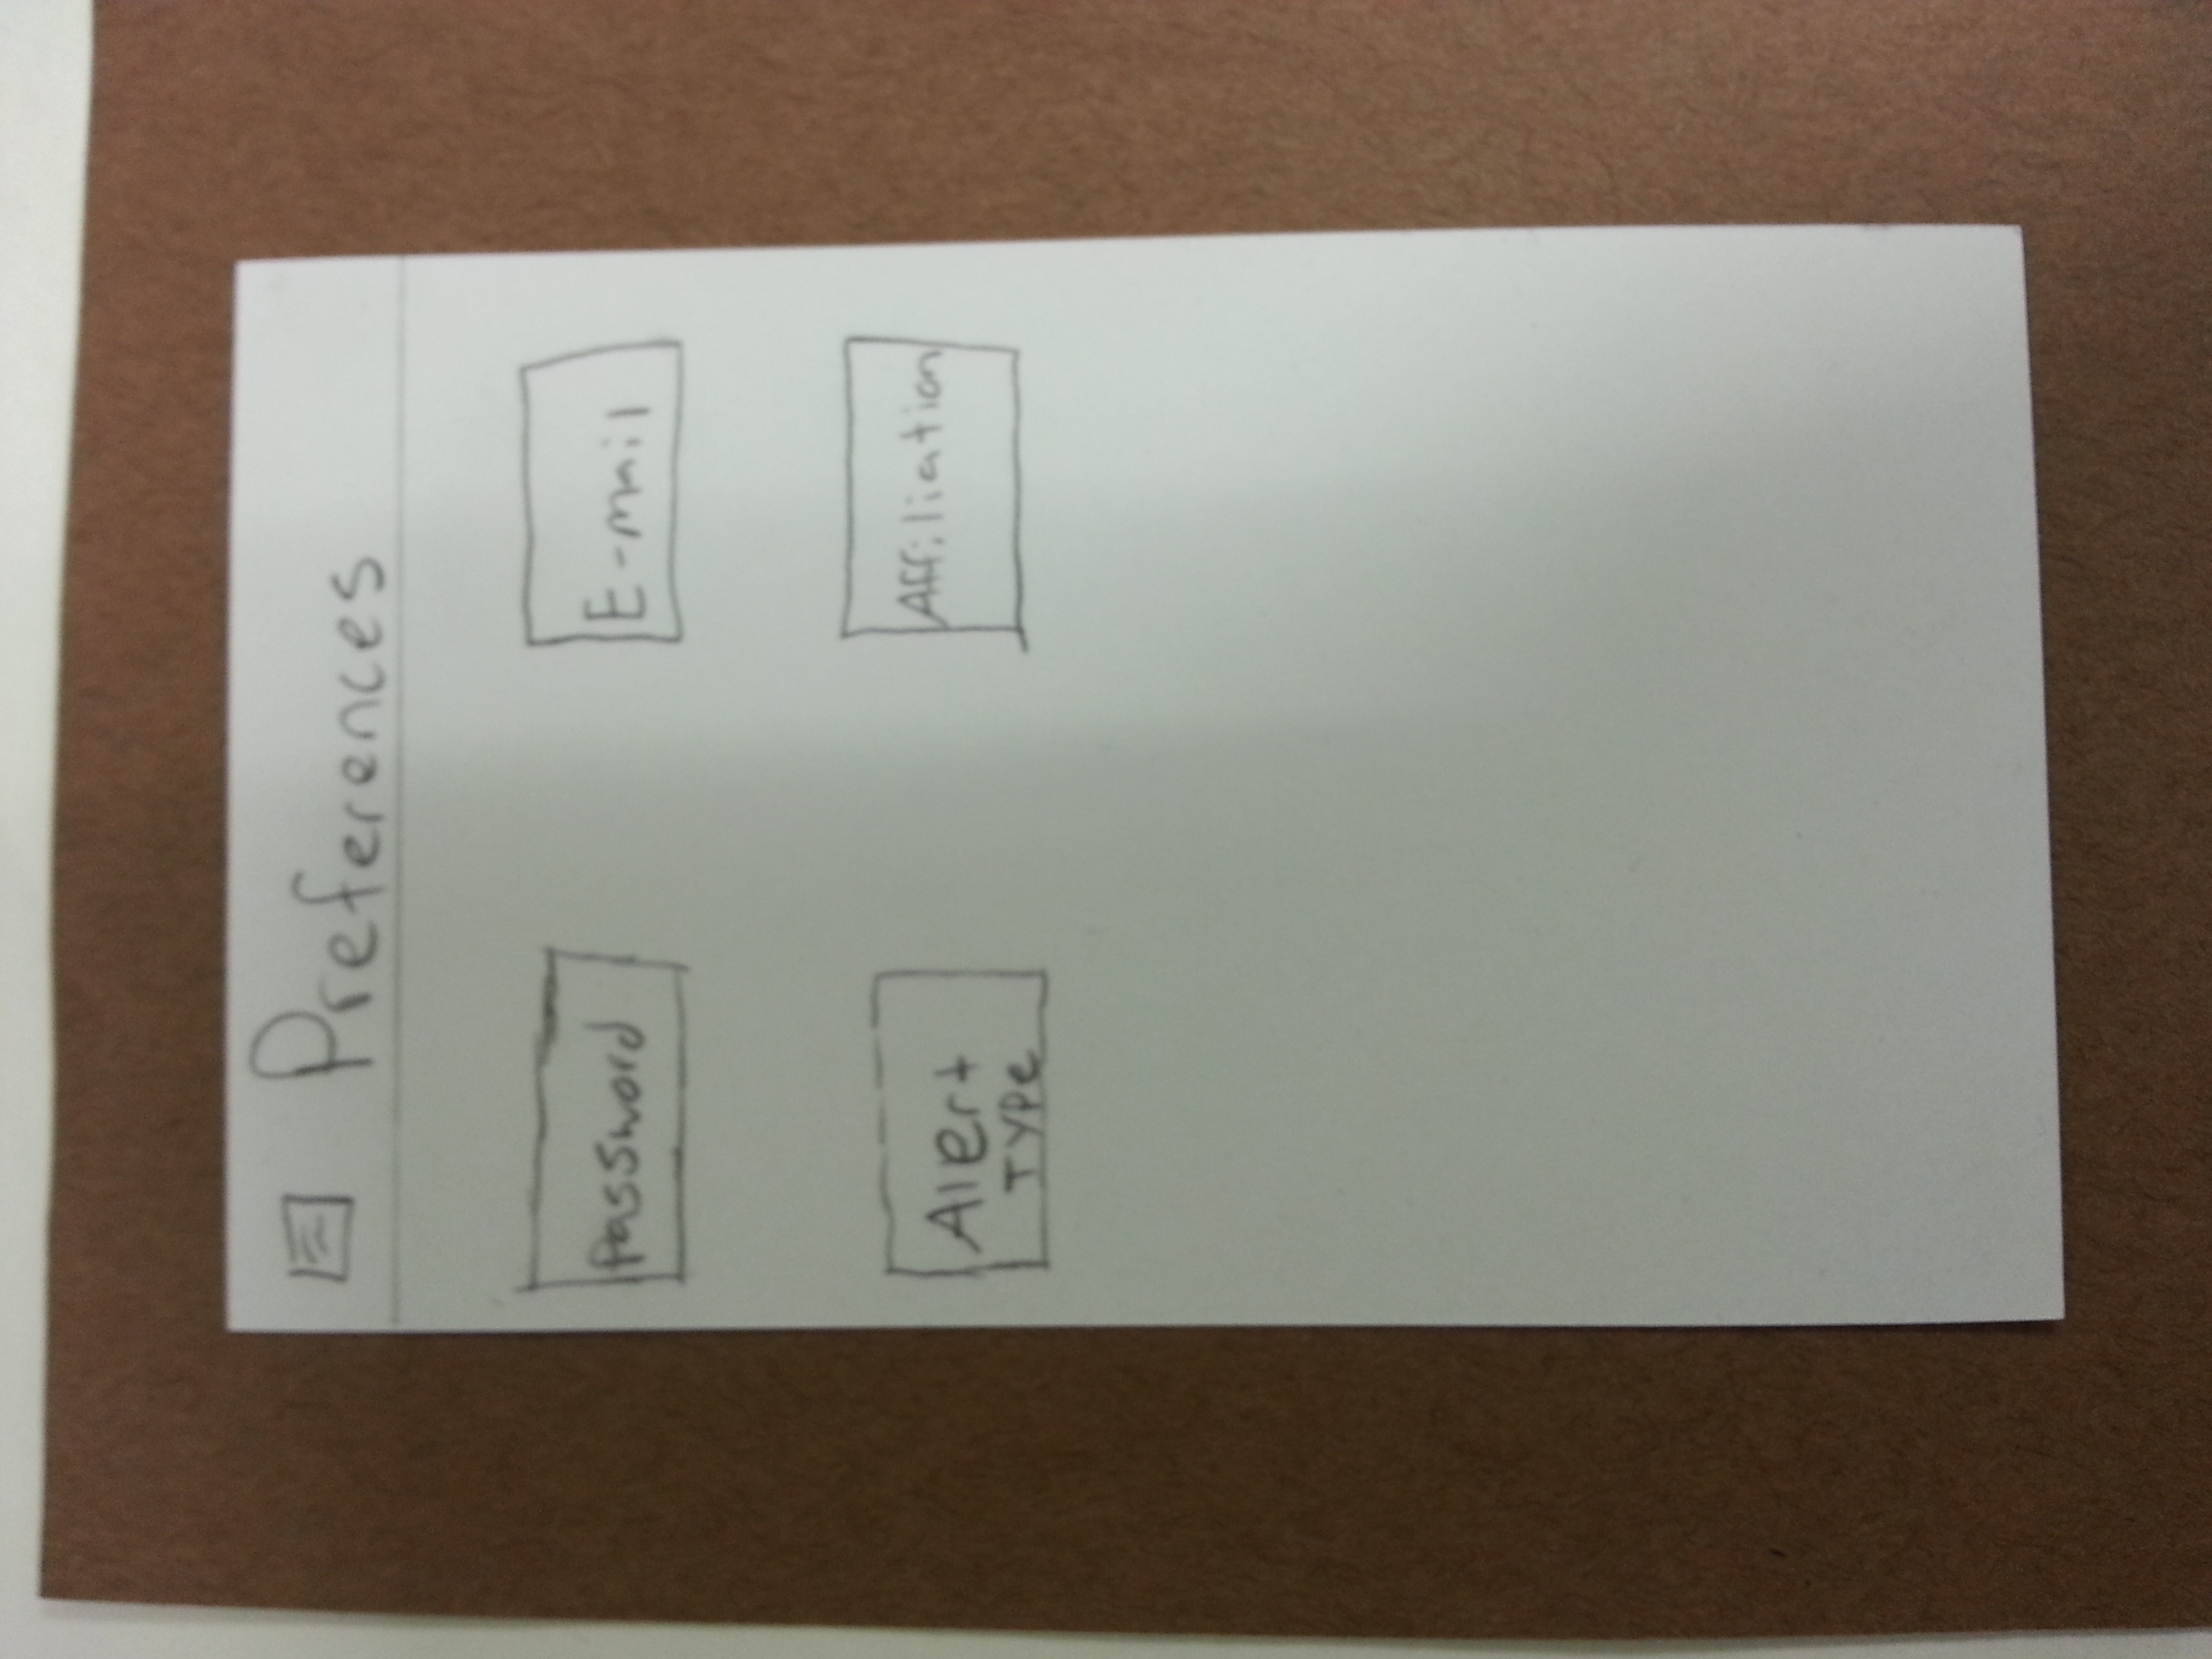 Preferences
Password
E-mail
Alert
Type
Affiliation